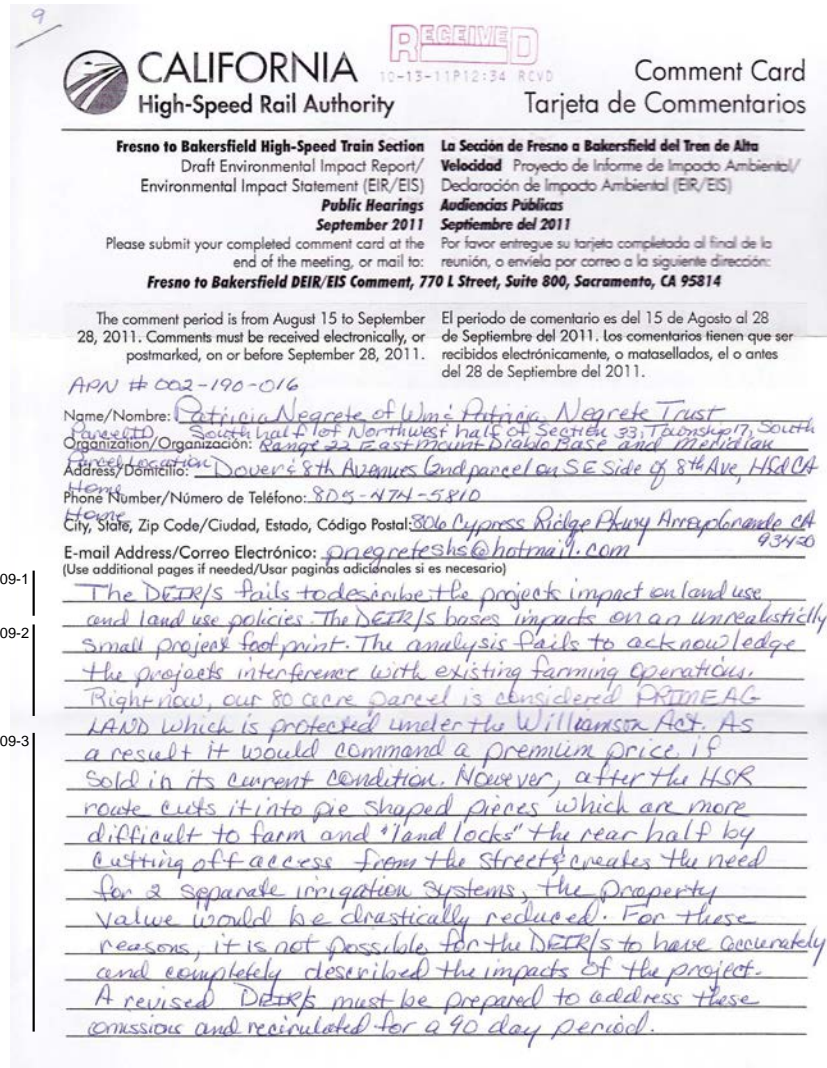 9
RECEIVED
10-13-11P12:34 RCVD
CALIFORNIA
High-Speed Rail Authority
Comment Card
Tarjeta de Comentarios
Fresno to Bakersfield High-Speed Train Section
Draft Environmental Impact Report/
Environmental Impact Statement (EIR/EIS)
Public Hearings
September 2011
Please submit your completed comment card at the
end of the meeting, or mail to:
La Sección de Fresno a Bakersfield del Tren de Alta
Velocidad Proyecto de Informe de Impacto Ambiental/
Declaración de Impacto Ambiental (EIR/EIS)
Audiencias Públicas
Septiembre del 2011
Por favor entregue su tarjeta completada al final de la
reunión, o envíela por correo a la siguiente dirección:
Fresno to Bakersfield DEIR/EIS Comment, 770 L Street, Suite 800, Sacramento, CA 95814
The comment period is from August 15 to September
28, 2011. Comments must be received electronically, or
postmarked, on or before September 28, 2011.
El periodo de comentario es del 15 de Agosto al 28
de Septiembre del 2011. Los comentarios tienen que ser
recibidos electrónicamente, o matasellados, el o antes
del 28 de Septiembre del 2011.
APN # 002-190-016
Name/Nombre: Patricia Negrete of Wm & Patricia Negrete Trust
Parcel ID South half of Northwest half of Section 33, Township 17, South
Organization/Organización: Range 22 East Mount Diablo Base and Meridian
Parcel Location
Address/Domicilio: Dover & 8th Avenues (2nd parcel on SE Side of 8th Ave, Hfd CA
Home
Phone Number/Número de Teléfono: 805-474-5810
Home
City, State, Zip Code/Ciudad, Estado, Código Postal: 806 Cypress Ridge Pkwy Arroyo Grande CA
93420
E-mail Address/Correo Electrónico: pnegreteshs@hotmail.com
(Use additional pages if needed/Usar paginas adicionales si es necesario)
09-1
The DEIR/S fails to describe the projects impact on land use
and land use policies. The DEIR/S bases impacts on an unrealisticlly
09-2
small project footprint. The analysis fails to acknowledge
the projects interference with existing farming operations.
Right now, our 80 acre parcel is considered PRIME AG
LAND which is protected under the Williamson Act. As
09-3
a result it would command a premium price if
sold in its current condition. However, after the HSR
route cuts it into pie shaped pieces which are more
difficult to farm and "land locks" the rear half by
cutting off access from the street & creates the need
for 2 separate irrigation systems, the property
value would be drastically reduced. For these
reasons, it is not possible for the DEIR/S to have accurately
and completely described the impacts of the project.
A revised DEIR/S must be prepared to address these
omissions and recirulated for a 90 day period.